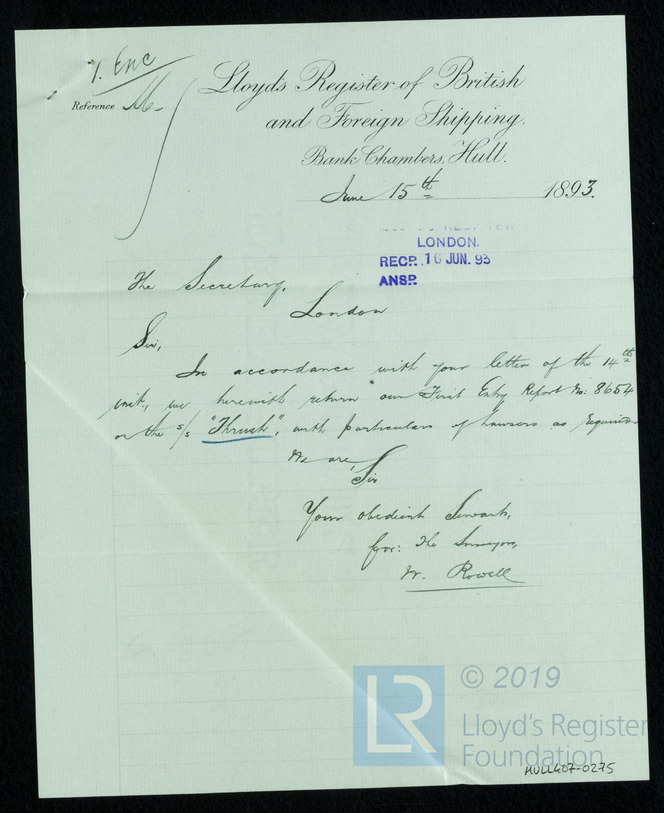 1. Enc
Reference M-
Lloyd's Register of British
and Foreign Shipping.
Bank Chambers, Hull.
June 15th 1893.
LONDON.
RECP. 16 JUN. 93
ANSP.
The Secretary,
London
Sir,
In accordance with your letter of the 14th
inst., we herewith return our First Entry Report No: 8654
on the s/s "Thrush", with particulars of hawsers as required
We are, Sir
Your obedient Servants,
for: The Surveyors,
W. Rowell
LR
© 2019
Lloyd's Register
Foundation
HULL407-0275